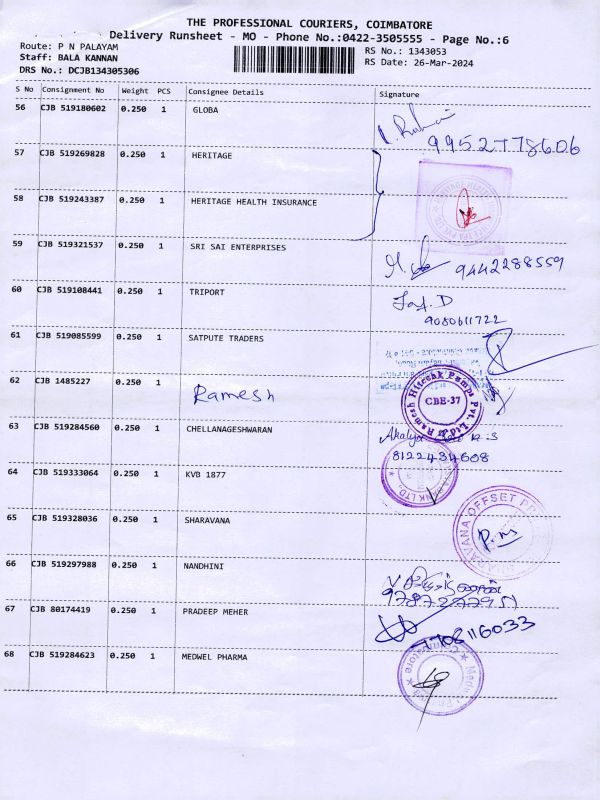 THE PROFESSIONAL COURIERS, COIMBATORE
Delivery Runsheet - MO - Phone No.:0422-3505555 - Page No.:6
Route: P N PALAYAM
Staff: BALA KANNAN
DRS No.: DCJB134305306
RS No.: 1343053
RS Date: 26-Mar-2024
S No Consignment No Weight PCS Consignee Details Signature
56 CJB 519180602 0.250 1 GLOBA
9952778606
57 CJB 519269828 0.250 1 HERITAGE
58 CJB 519243387 0.250 1 HERITAGE HEALTH INSURANCE
59 CJB 519321537 0.250 1 SRI SAI ENTERPRISES
9442288559
60 CJB 519108441 0.250 1 TRIPORT
9080611722
61 CJB 519085599 0.250 1 SATPUTE TRADERS
62 CJB 1485227 0.250 1 Ramesh
Ramesh Hitechk Pumps Pvt. Ltd.
CBE-37
63 CJB 519284560 0.250 1 CHELLANAGESHWARAN
8122434608
64 CJB 519333064 0.250 1 KVB 1877
65 CJB 519328036 0.250 1 SHARAVANA
66 CJB 519297988 0.250 1 NANDHINI
67 CJB 80174419 0.250 1 PRADEEP MEHER
68 CJB 519284623 0.250 1 MEDWEL PHARMA